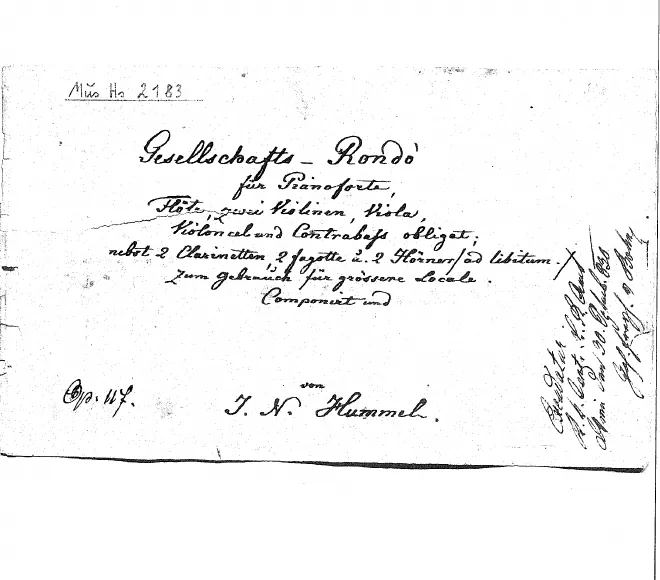 Mus Hs 2183
Gesellschafts - Rondo
für Pianoforte,
Flöte, zwei Violinen, Viola,
Violoncel und Contrabass obligat;
nebst 2 Clarinetten, 2 Fagotte u. 2 Hörner/ad libitum./
zum Gebrauch für grössere Locale.
Componirt und
von
Op. 117.
J. N. Hummel.
den 30.